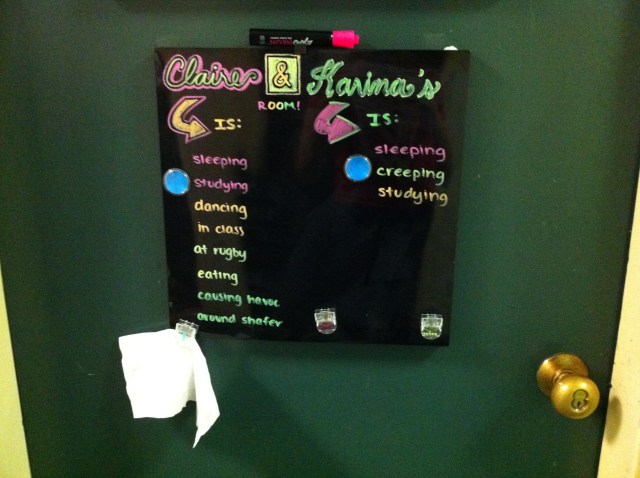 Claire & Karina's
ROOM!
IS:
sleeping
studying
dancing
in class
at rugby
eating
causing havoc
around shafer
IS:
sleeping
creeping
studying